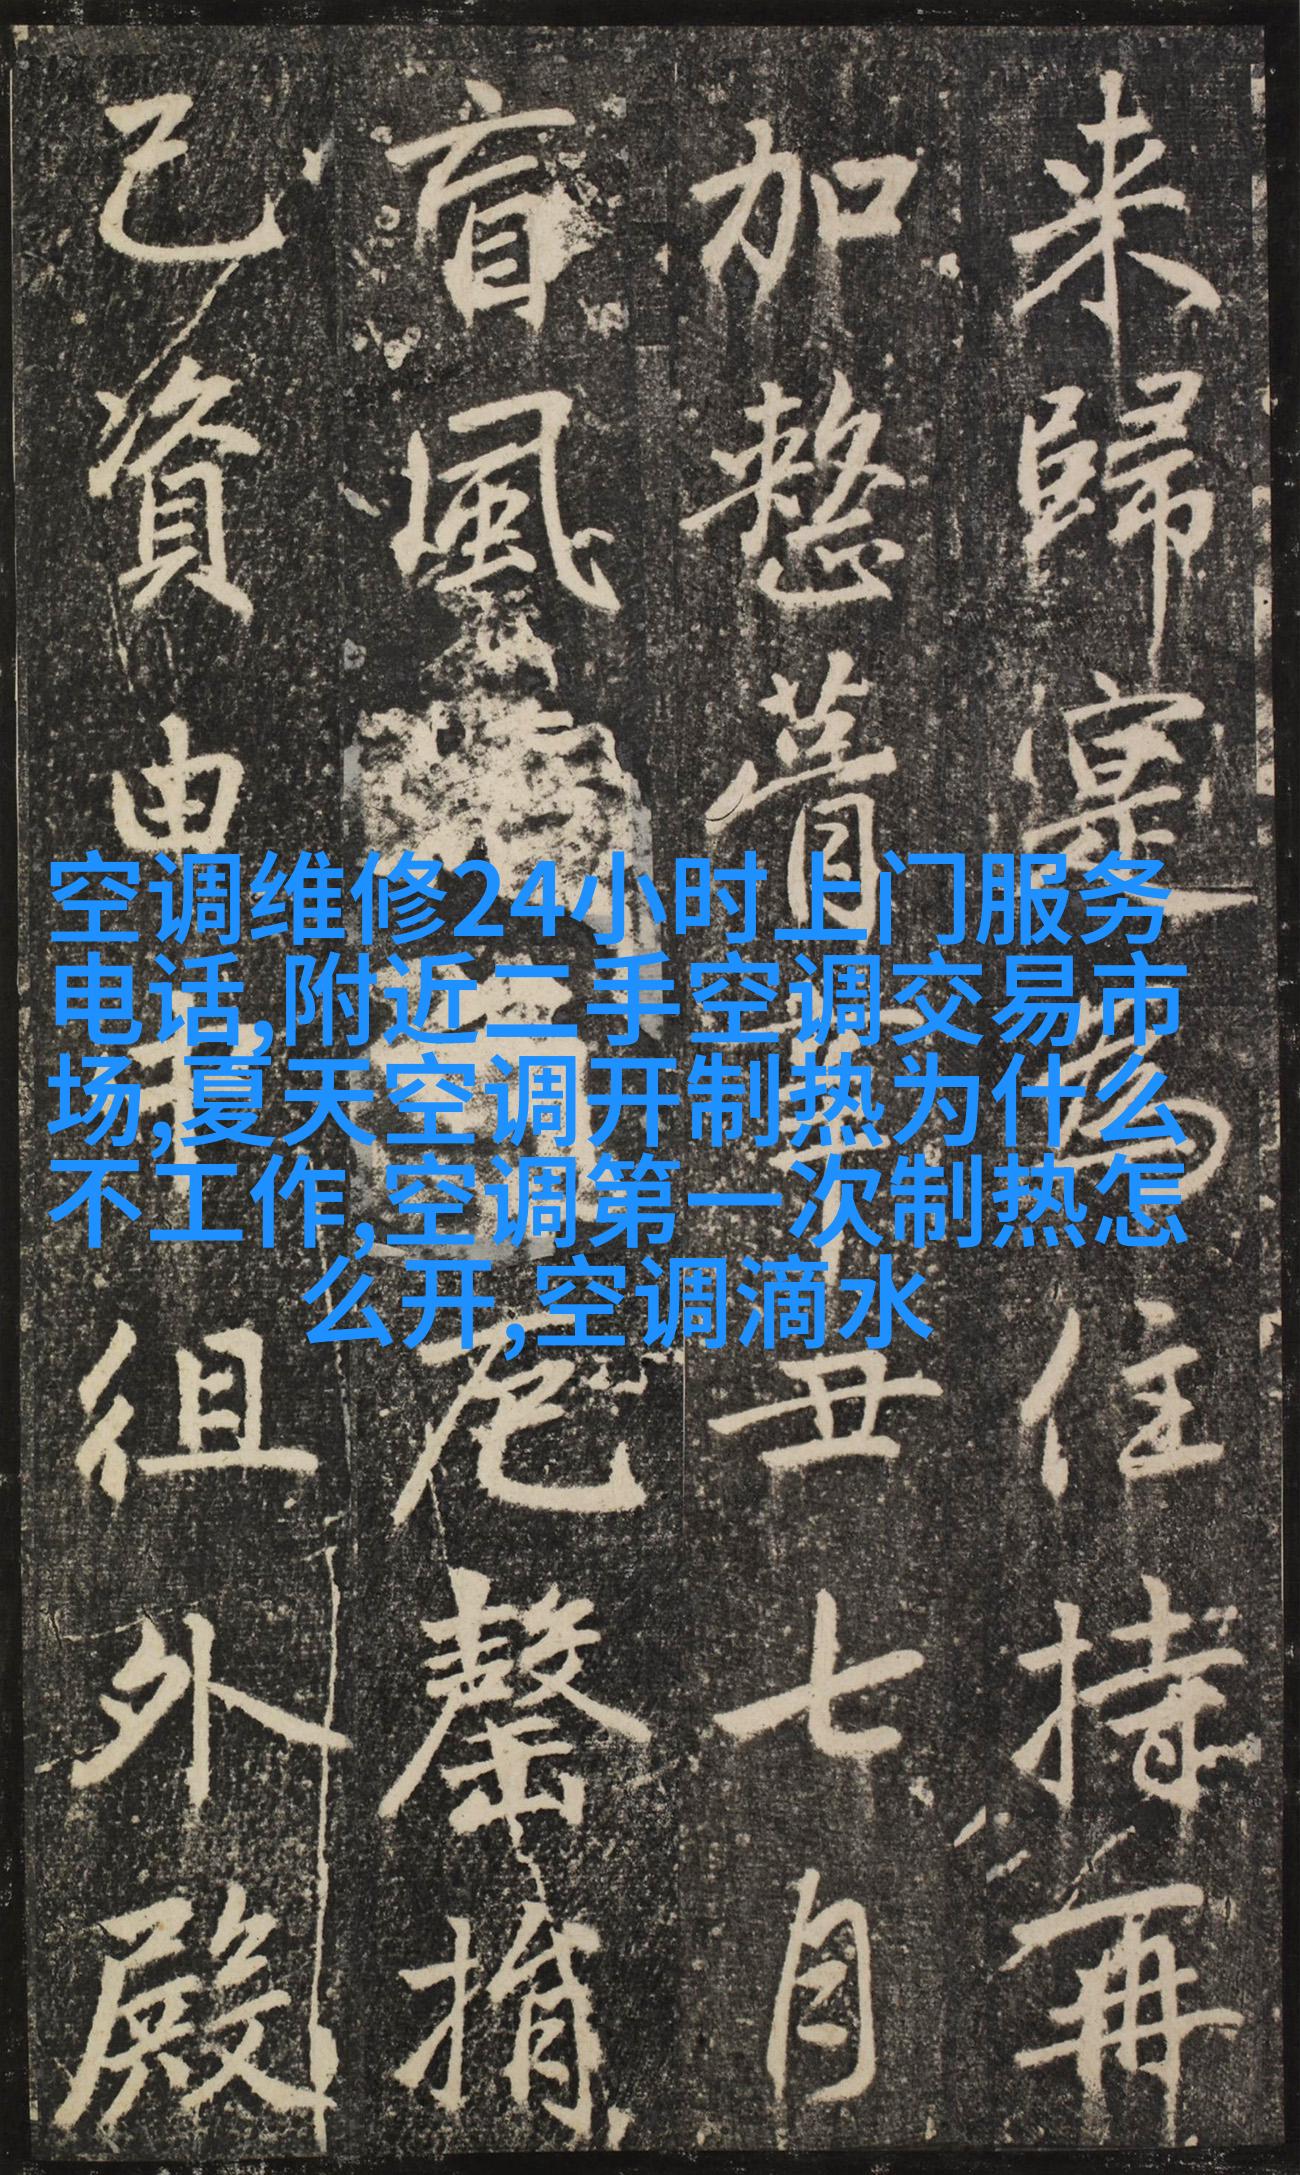 来歸寔為住持再
加慗葺
丑七月
盲風
危罄捎
己資由
徂外殿
空调维修24小时上门服务
电话,附近二手空调交易市
场,夏天空调开制热为什么
不工作,空调第一次制热怎
么开,空调滴水